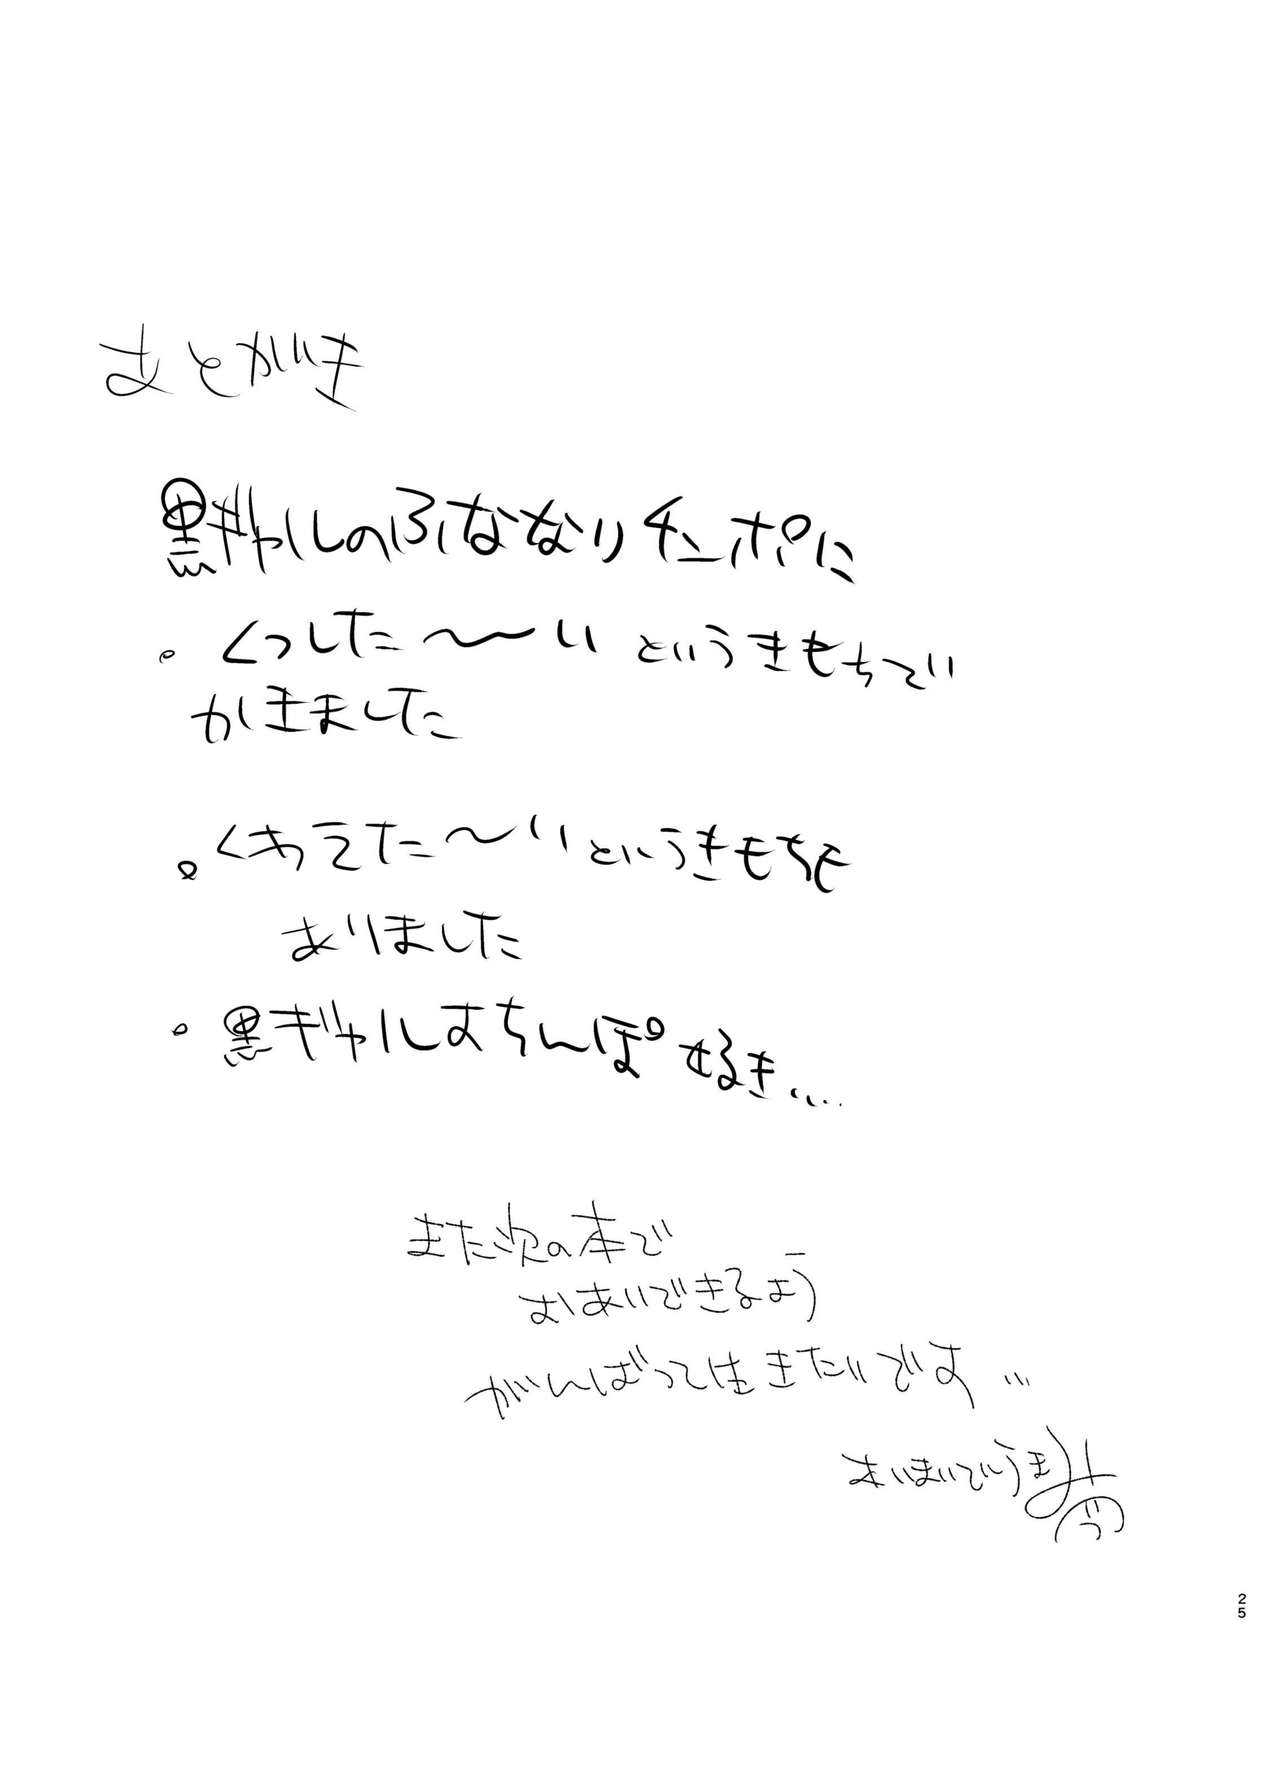 あとがき
黒ギャルのふたなりチンポに
・くっした〜〜いというきもちで
かきました
・くわえた〜いというきもちも
ありました
・黒ギャルおちんぽ好き…
また次の本で
おあいできるよう
がんばって生きたいです…